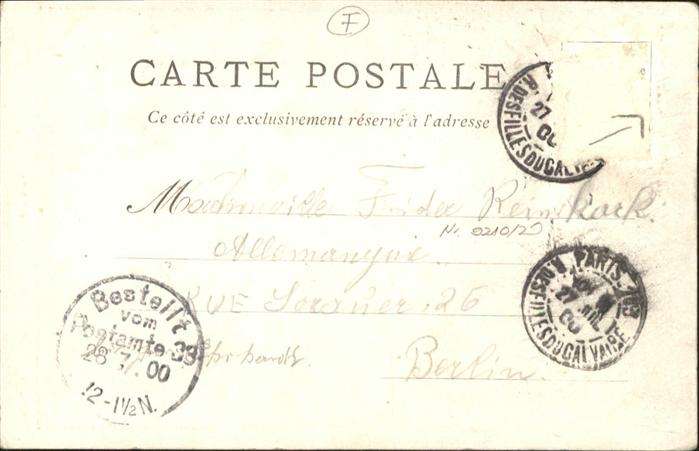 F
CARTE POSTALE
Ce côté est exclusivement réservé à l'adresse
R. DES FILLES DU CALVAIRE
27
00
Mademoiselle Frida
Nr. 0210/20
Allemangue
RUE 26
Berlin
PARIS
R. DES FILLES DU CALVAIRE
27 JUIL
00
Bestellt
vom
Postamte
28/7.00
12-1½N.